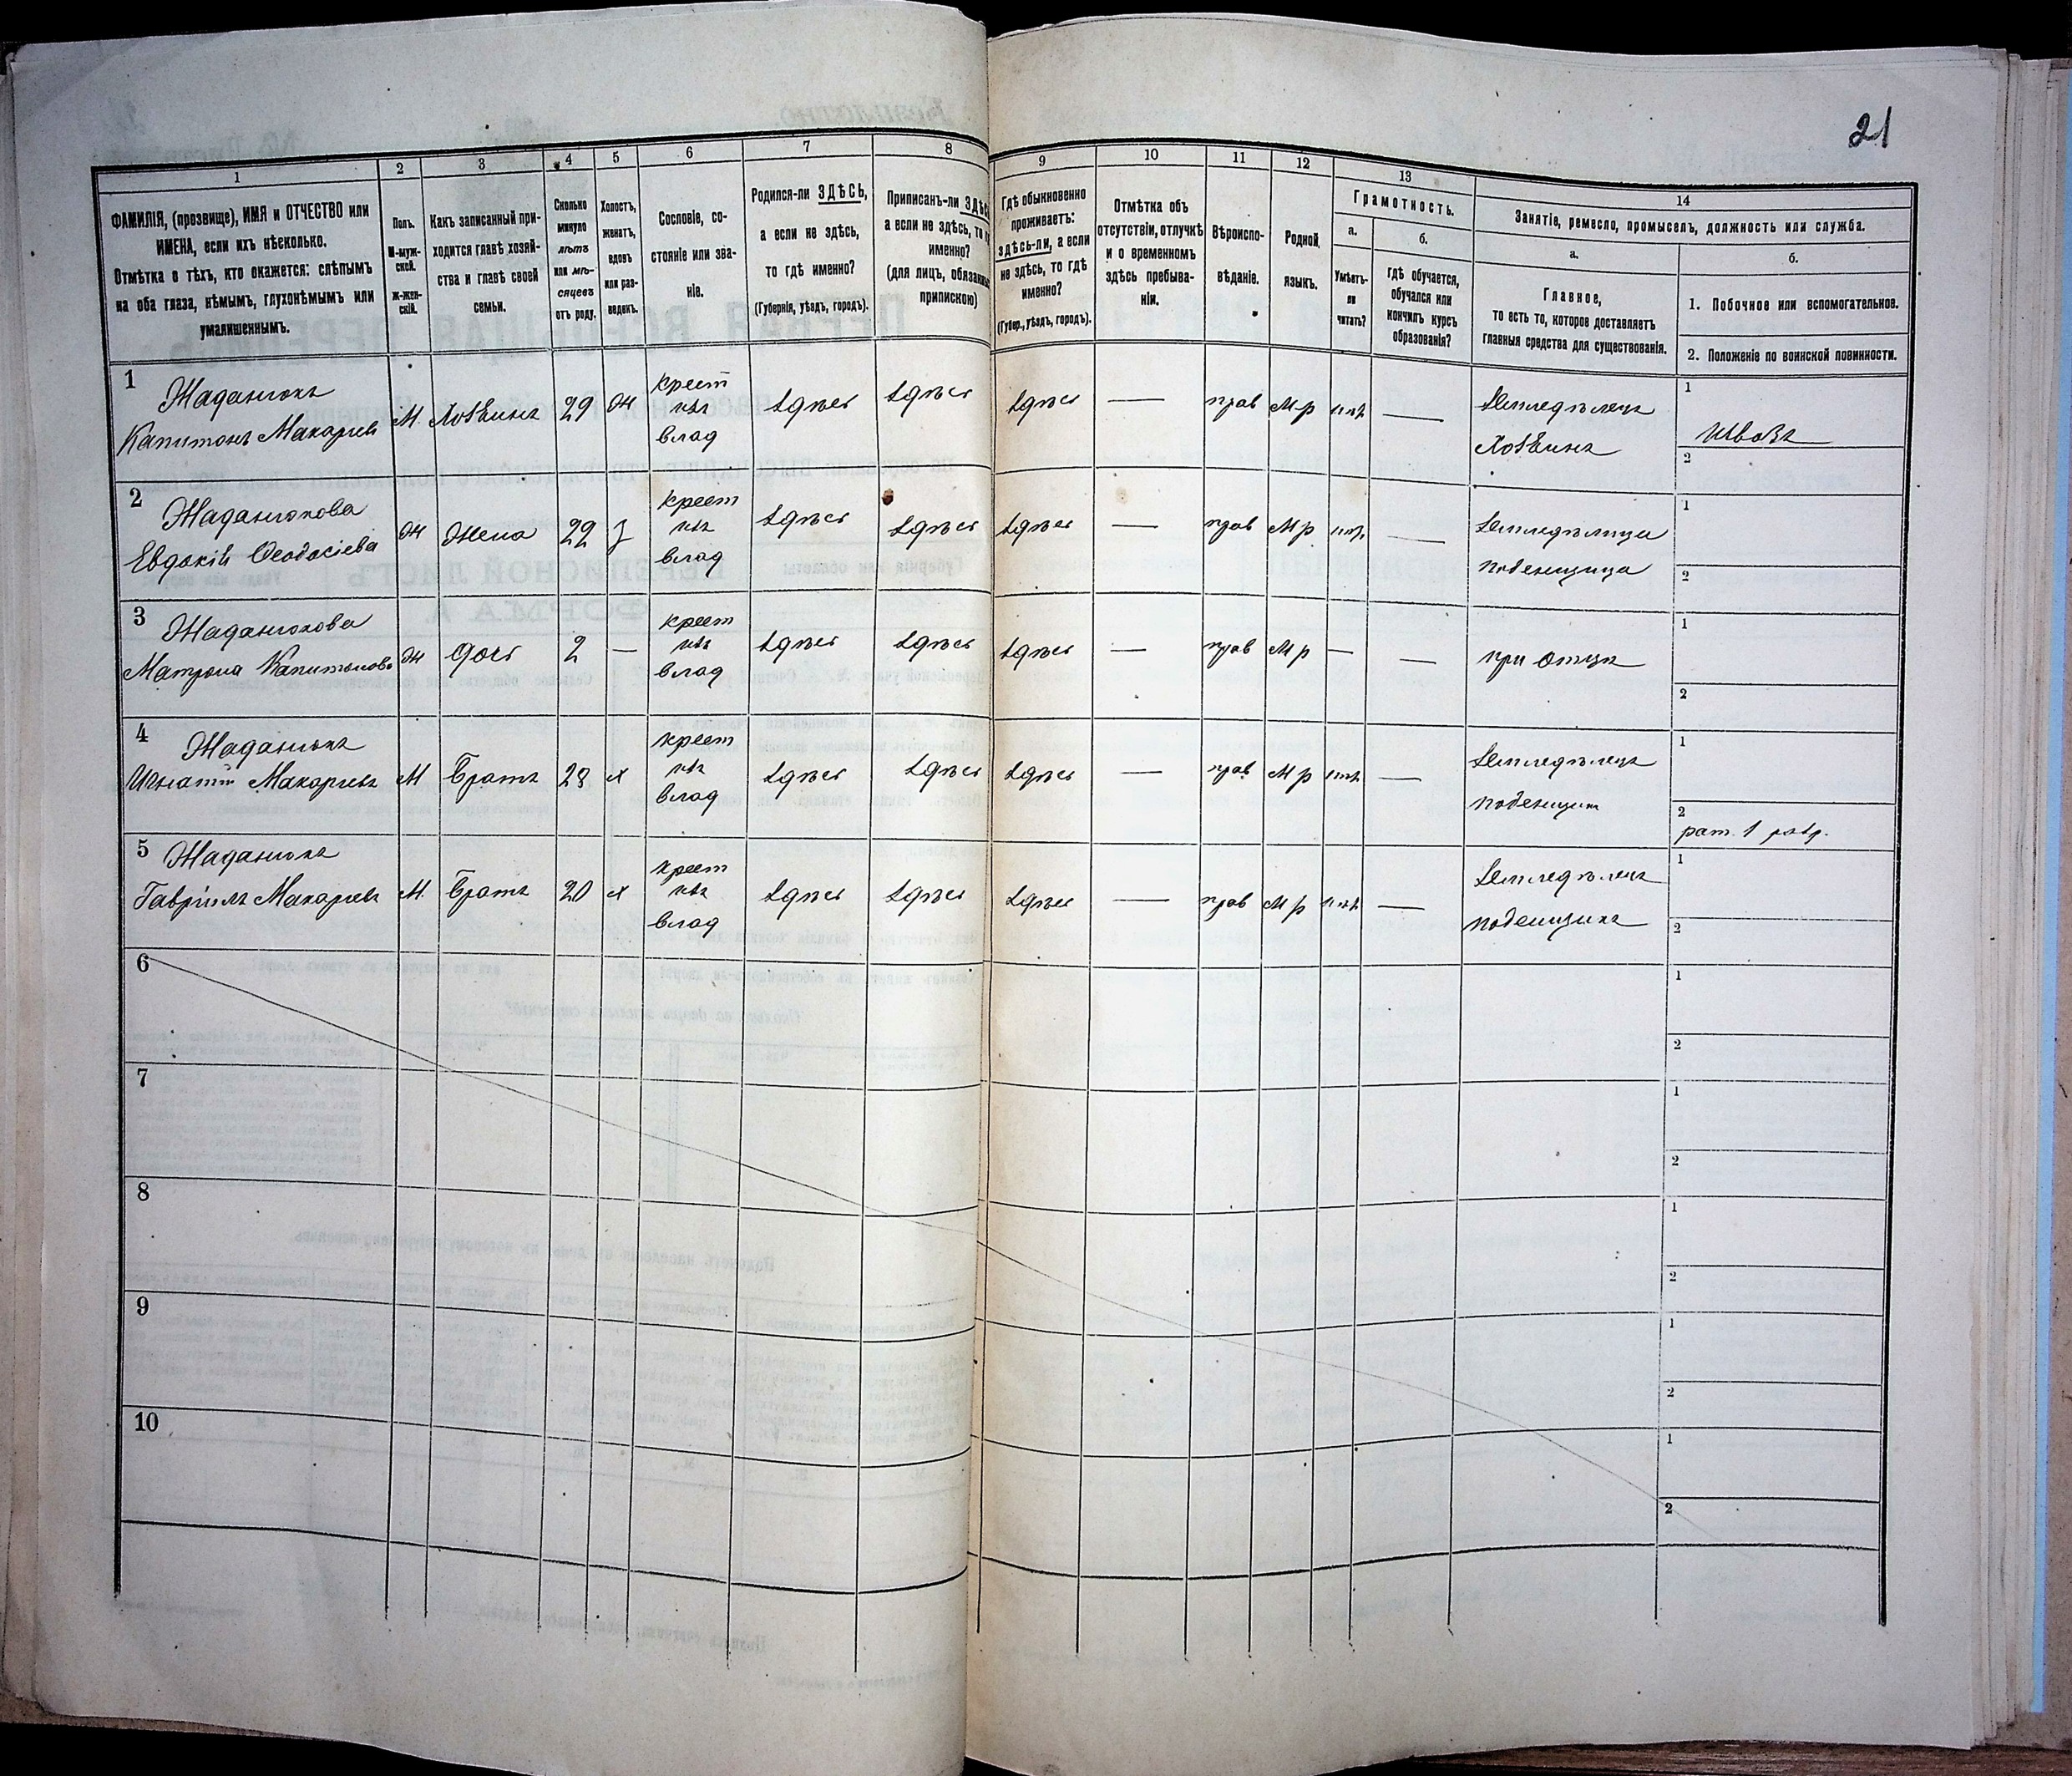 21
1
2
3
4
5
6
7
8
9
10
11
12
13
14
ФАМИЛІЯ, (прозвище), ИМЯ и ОТЧЕСТВО или
ИМЕНА, если ихъ нѣсколько.
Отмѣтка о тѣхъ, кто окажется: слѣпымъ
на оба глаза, нѣмымъ, глухонѣмымъ или
умалишеннымъ.
Полъ.
М-муж-
ской.
Ж-жен-
скій.
Какъ записанный при-
ходится главѣ хозяй-
ства и главѣ своей
семьи.
Сколько
минуло
лѣтъ
или мѣ-
сяцевъ
отъ роду.
Холостъ,
женатъ,
вдовъ
или раз-
веденъ.
Сословіе, со-
стояніе или зва-
ніе.
Родился-ли ЗДѢСЬ,
а если не здѣсь,
то гдѣ именно?
(Губернія, уѣздъ, городъ).
Приписанъ-ли
а если не здѣсь, то
именно?
(для лицъ,
припискою)
Гдѣ обыкновенно
проживаетъ:
здѣсь-ли, а если
не здѣсь, то гдѣ
именно?
(Губер., уѣздъ, городъ).
Отмѣтка объ
отсутствіи, отлучкѣ
и о временномъ
здѣсь пребыва-
ніи.
Вѣроиспо-
вѣданіе.
Родной
языкъ.
Грамотность.
а.
Умѣетъ-
ли
читать?
б.
гдѣ обучается,
обучался или
кончилъ курсъ
образованія?
Занятіе, ремесло, промыселъ, должность или служба.
а.
Главное,
то есть то, которое доставляетъ
главныя средства для существованія.
б.
1. Побочное или вспомогательное.
2. Положеніе по воинской повинности.
1 Жаданюкъ
Капитонъ Макаріевъ М. Хозяинъ 29 ж крест изъ влад здѣсь здѣсь здѣсь — прав Мр — Земледѣлецъ Хозяинъ 1 2
2 Жаданюкова
Евдокія Феодосіева ж Жена 22 з крест изъ влад здѣсь здѣсь здѣсь — прав Мр — Земледѣлица поденщица 1 2
3 Жаданюкова
Матрона Капитонова ж дочь 2 — крест изъ влад здѣсь здѣсь здѣсь — прав Мр — — при отцѣ 1 2
4 Жаданюкъ
Игнатій Макаріевъ М Братъ 28 х крест изъ влад здѣсь здѣсь здѣсь — прав Мр — Земледѣлецъ поденщик 1 2 рат. 1 разр.
5 Жаданюкъ
Гавріилъ Макаріевъ М. Братъ 20 х крест изъ влад здѣсь здѣсь здѣсь — прав Мр — Земледѣлецъ поденщикъ 1 2
6 1 2
7 1 2
8 1 2
9 1 2
10 1 2